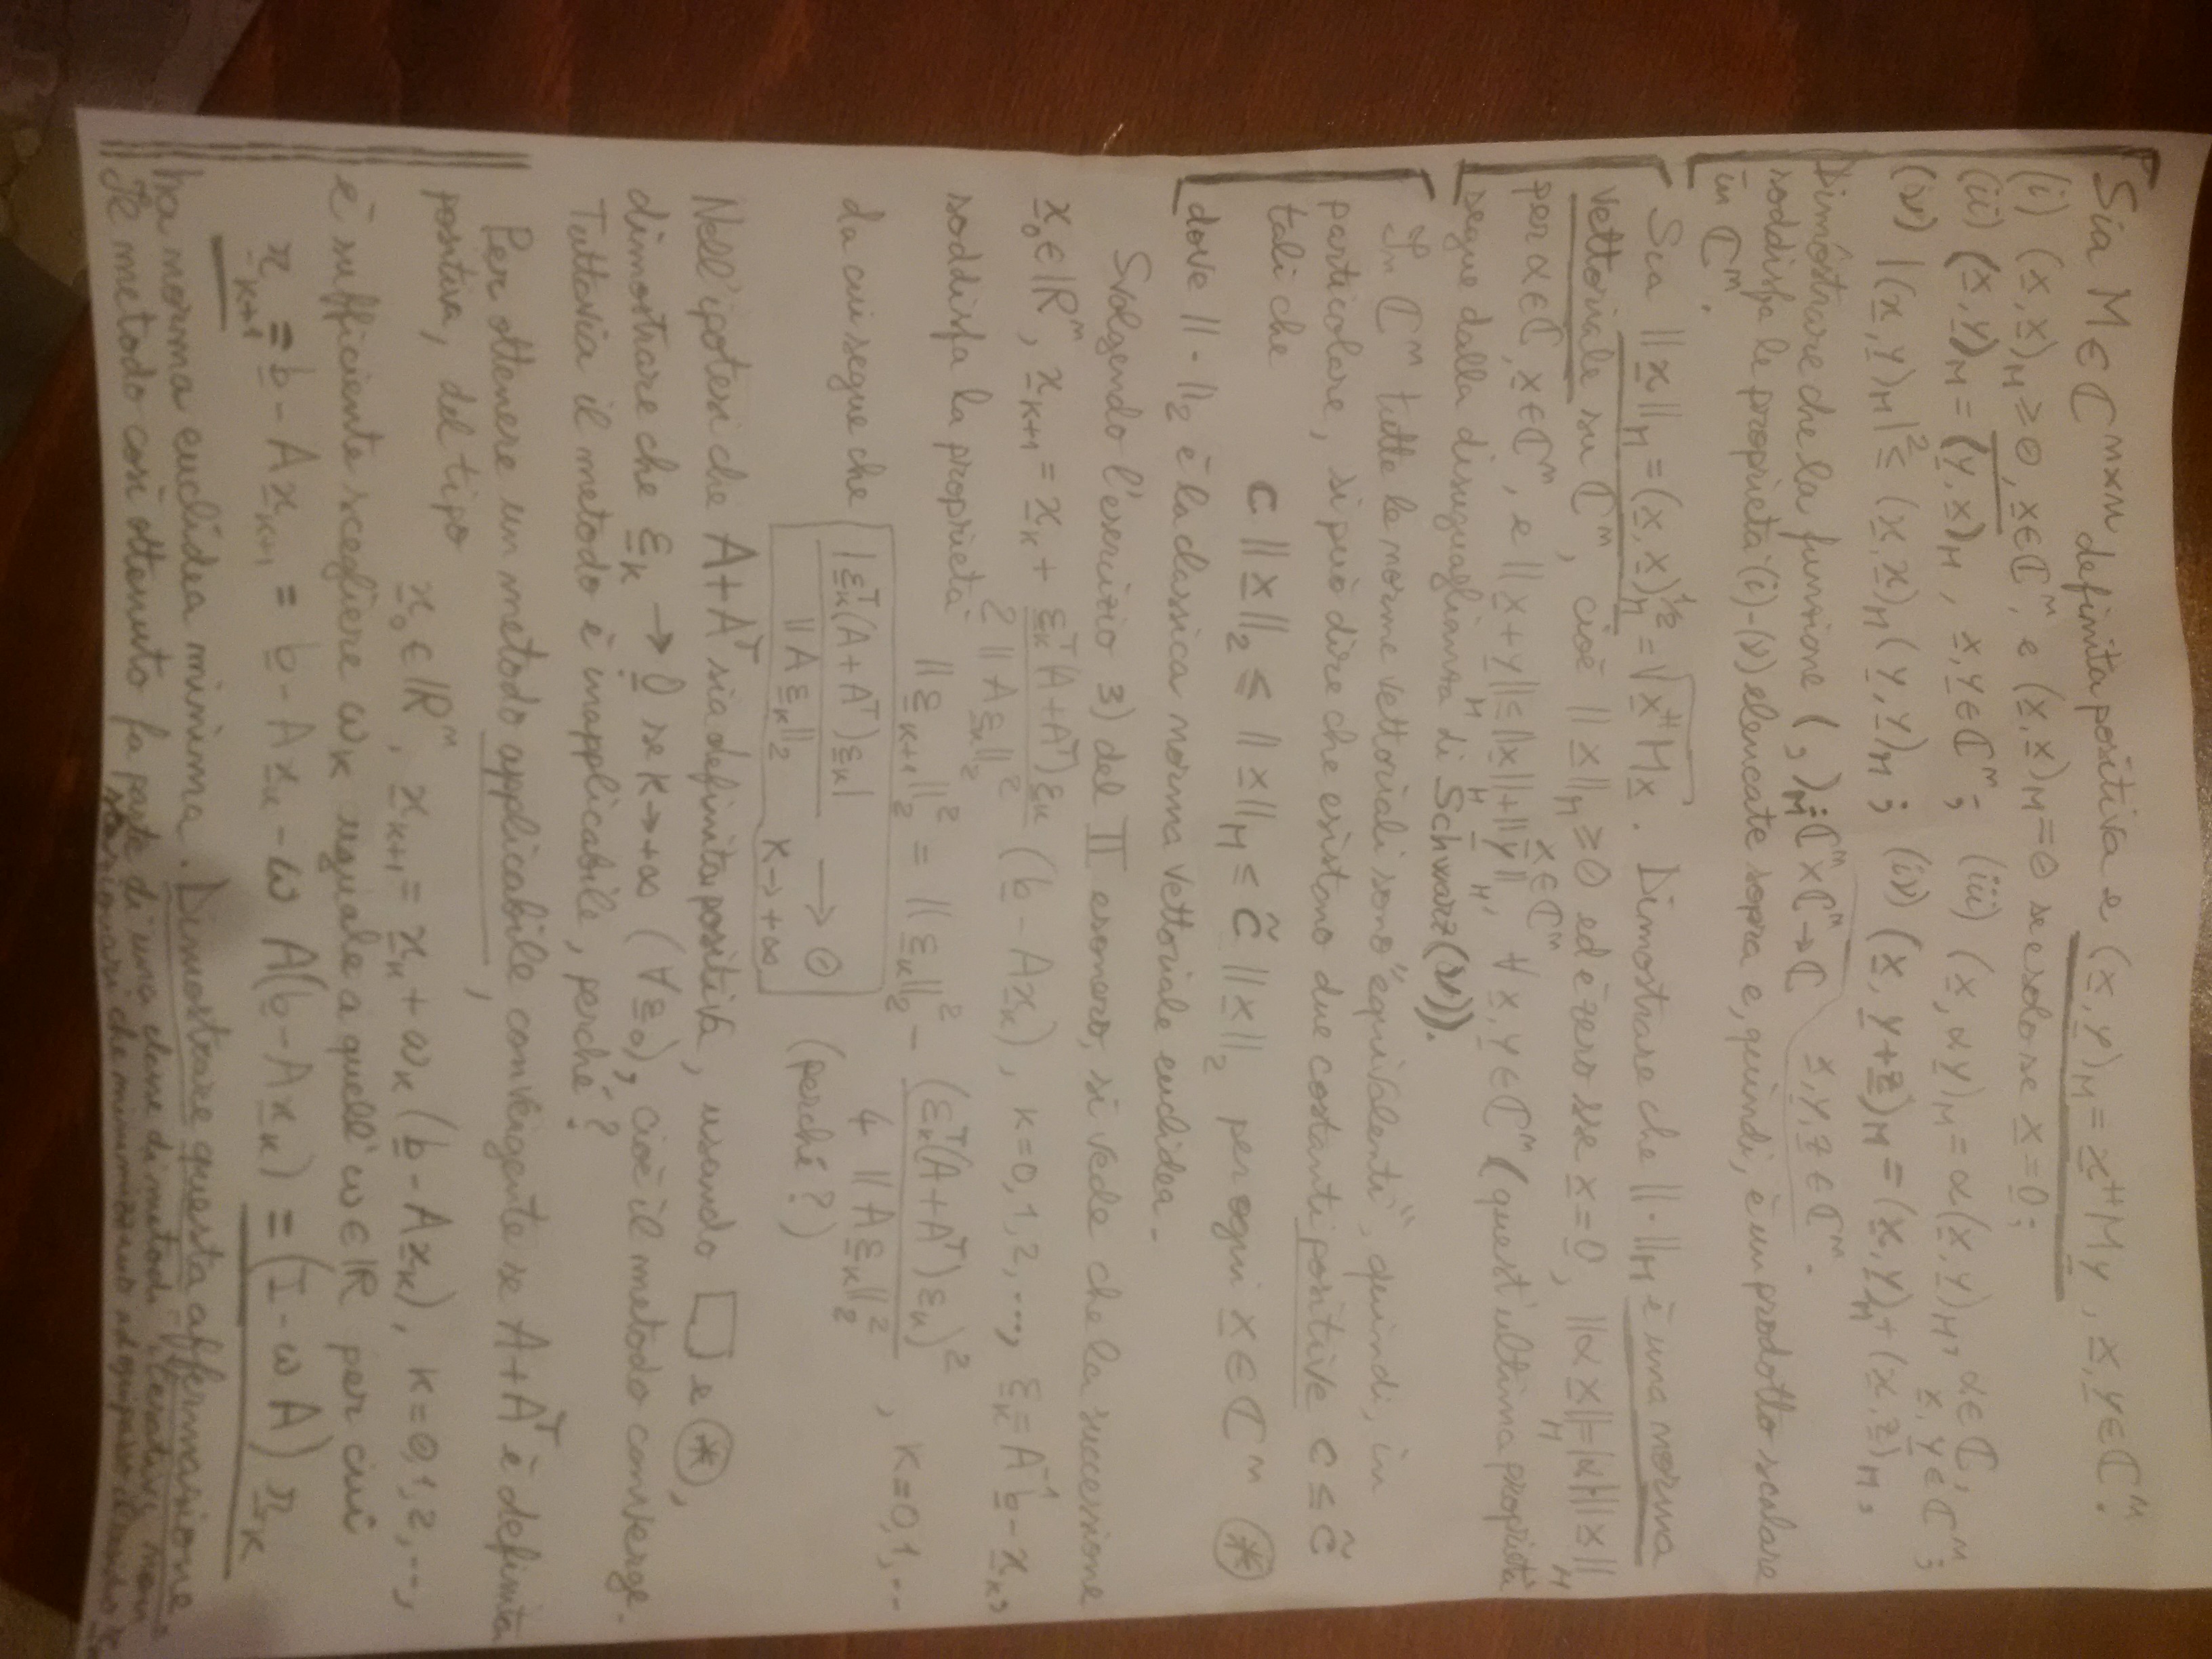 Sia M ∈ ℂⁿˣⁿ definita positiva e (x, y)_M = x^H M y, x, y ∈ ℂⁿ.
(i) (x, x)_M ≥ 0, x ∈ ℂⁿ, e (x, x)_M = 0 se e solo se x = 0;
(ii) (x, y)_M = \overline{(y, x)}_M, x, y ∈ ℂⁿ; (iii) (x, αy)_M = α(x, y)_M, α ∈ ℂ, x, y ∈ ℂⁿ;
(v) |(x, y)_M|² ≤ (x, x)_M (y, y)_M; (iv) (x, y+z)_M = (x, y)_M + (x, z)_M,
x, y, z ∈ ℂⁿ.
Dimostrare che la funzione ( , )_M : ℂⁿ × ℂⁿ → ℂ
soddisfa le proprietà (i)-(v) elencate sopra e, quindi, è un prodotto scalare
in ℂⁿ.
Sia ‖x‖_M = (x, x)_M^{1/2} = √(x^H M x). Dimostrare che ‖·‖_M è una norma
vettoriale su ℂⁿ, cioè ‖x‖_M ≥ 0 ed è zero sse x = 0, ‖αx‖_M = |α| ‖x‖_M
x ∈ ℂⁿ
per α ∈ ℂ, x ∈ ℂⁿ, e ‖x + y‖_M ≤ ‖x‖_M + ‖y‖_M, ∀ x, y ∈ ℂⁿ (quest'ultima proprietà
segue dalla disuguaglianza di Schwarz (v)).
In ℂⁿ tutte le norme vettoriali sono "equivalenti", quindi, in
particolare, si può dire che esistono due costanti positive c ≤ c̃
tali che
c ‖x‖₂ ≤ ‖x‖_M ≤ c̃ ‖x‖₂ per ogni x ∈ ℂⁿ (*)
dove ‖·‖₂ è la classica norma vettoriale euclidea.
Svolgendo l'esercizio 3) del II esonero, si vede che la successione
x₀ ∈ ℝⁿ, x_{k+1} = x_k + \frac{ε_k^T (A+A^T) ε_k}{2 ‖A ε_k‖₂²} (b - A x_k), k = 0, 1, 2, ..., ε_k = A⁻¹ b - x_k,
soddisfa la proprietà
‖ε_{k+1}‖₂² = ‖ε_k‖₂² - \frac{(ε_k^T (A+A^T) ε_k)²}{4 ‖A ε_k‖₂²}, k = 0, 1, ...
da cui segue che \frac{|ε_k^T (A+A^T) ε_k|}{‖A ε_k‖₂} → 0 k → +∞ (perché?)
Nell'ipotesi che A+A^T sia definita positiva, usando □ e (*),
dimostrare che ε_k → 0 se k → +∞ (∀ ε₀), cioè il metodo converge.
Tuttavia il metodo è inapplicabile, perché?
Per ottenere un metodo applicabile, convergente se A+A^T è definita
positiva, del tipo
x₀ ∈ ℝⁿ, x_{k+1} = x_k + ω_k (b - A x_k), k = 0, 1, 2, ...,
è sufficiente scegliere ω_k uguale a quell'ω ∈ ℝ per cui
r_{k+1} = b - A x_{k+1} = b - A x_k - ω A(b - A x_k) = (I - ωA) r_k
ha norma euclidea minima. Dimostrare questa affermazione.
Il metodo così ottenuto fa parte di una classe di metodi iterativi non
stazionari che minimizzano ad ogni passo il residuo